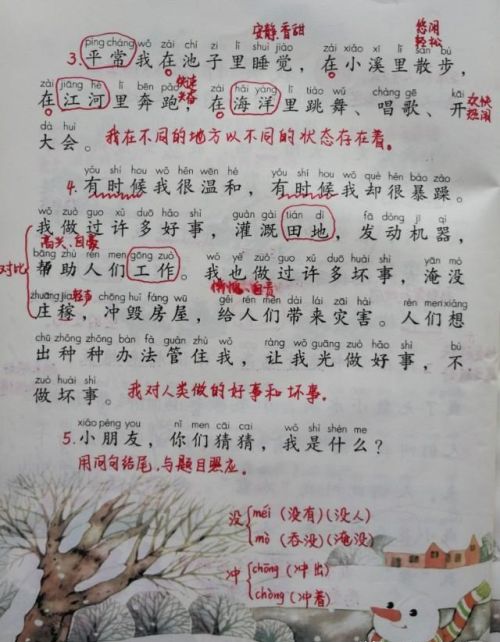 安静、香甜
悠闲
轻松
píng cháng wǒ zài chí zi lǐ shuì jiào zài xiǎo xī lǐ sàn bù
3.平常我在池子里睡觉，在小溪里散步，
zài jiāng hé lǐ bēn pǎo zài hǎi yáng lǐ tiào wǔ chàng gē kāi
在江河里奔跑，在海洋里跳舞、唱歌、开
快速
欢快
热闹
dà huì
大会。我在不同的地方以不同的状态存在着。
yǒu shí hou wǒ hěn wēn hé yǒu shí hou wǒ què hěn bào zào
4.有时候我很温和，有时候我却很暴躁。
wǒ zuò guo xǔ duō hǎo shì guàn gài tián dì fā dòng jī qì
我做过许多好事，灌溉田地，发动机器，
高兴、自豪
对比
bāng zhù rén men gōng zuò wǒ yě zuò guo xǔ duō huài shì yān mò
帮助人们工作。我也做过许多坏事，淹没
zhuāng jia 轻声 chōng huǐ fáng wū gěi rén men dài lái zāi hài rén men xiǎng
庄稼，冲毁房屋，给人们带来灾害。人们想
chū zhǒng zhǒng bàn fǎ guǎn zhù wǒ ràng wǒ guāng zuò hǎo shì bù
出种种办法管住我，让我光做好事，不
zuò huài shì
做坏事。我对人类做的好事和坏事。
xiǎo péng you nǐ men cāi cai wǒ shì shén me
5.小朋友，你们猜猜，我是什么？
用问句结尾，与题目照应。
没 méi（没有）（没人）
mò（吞没）（淹没）
冲 chōng（冲出）
chòng（冲着）